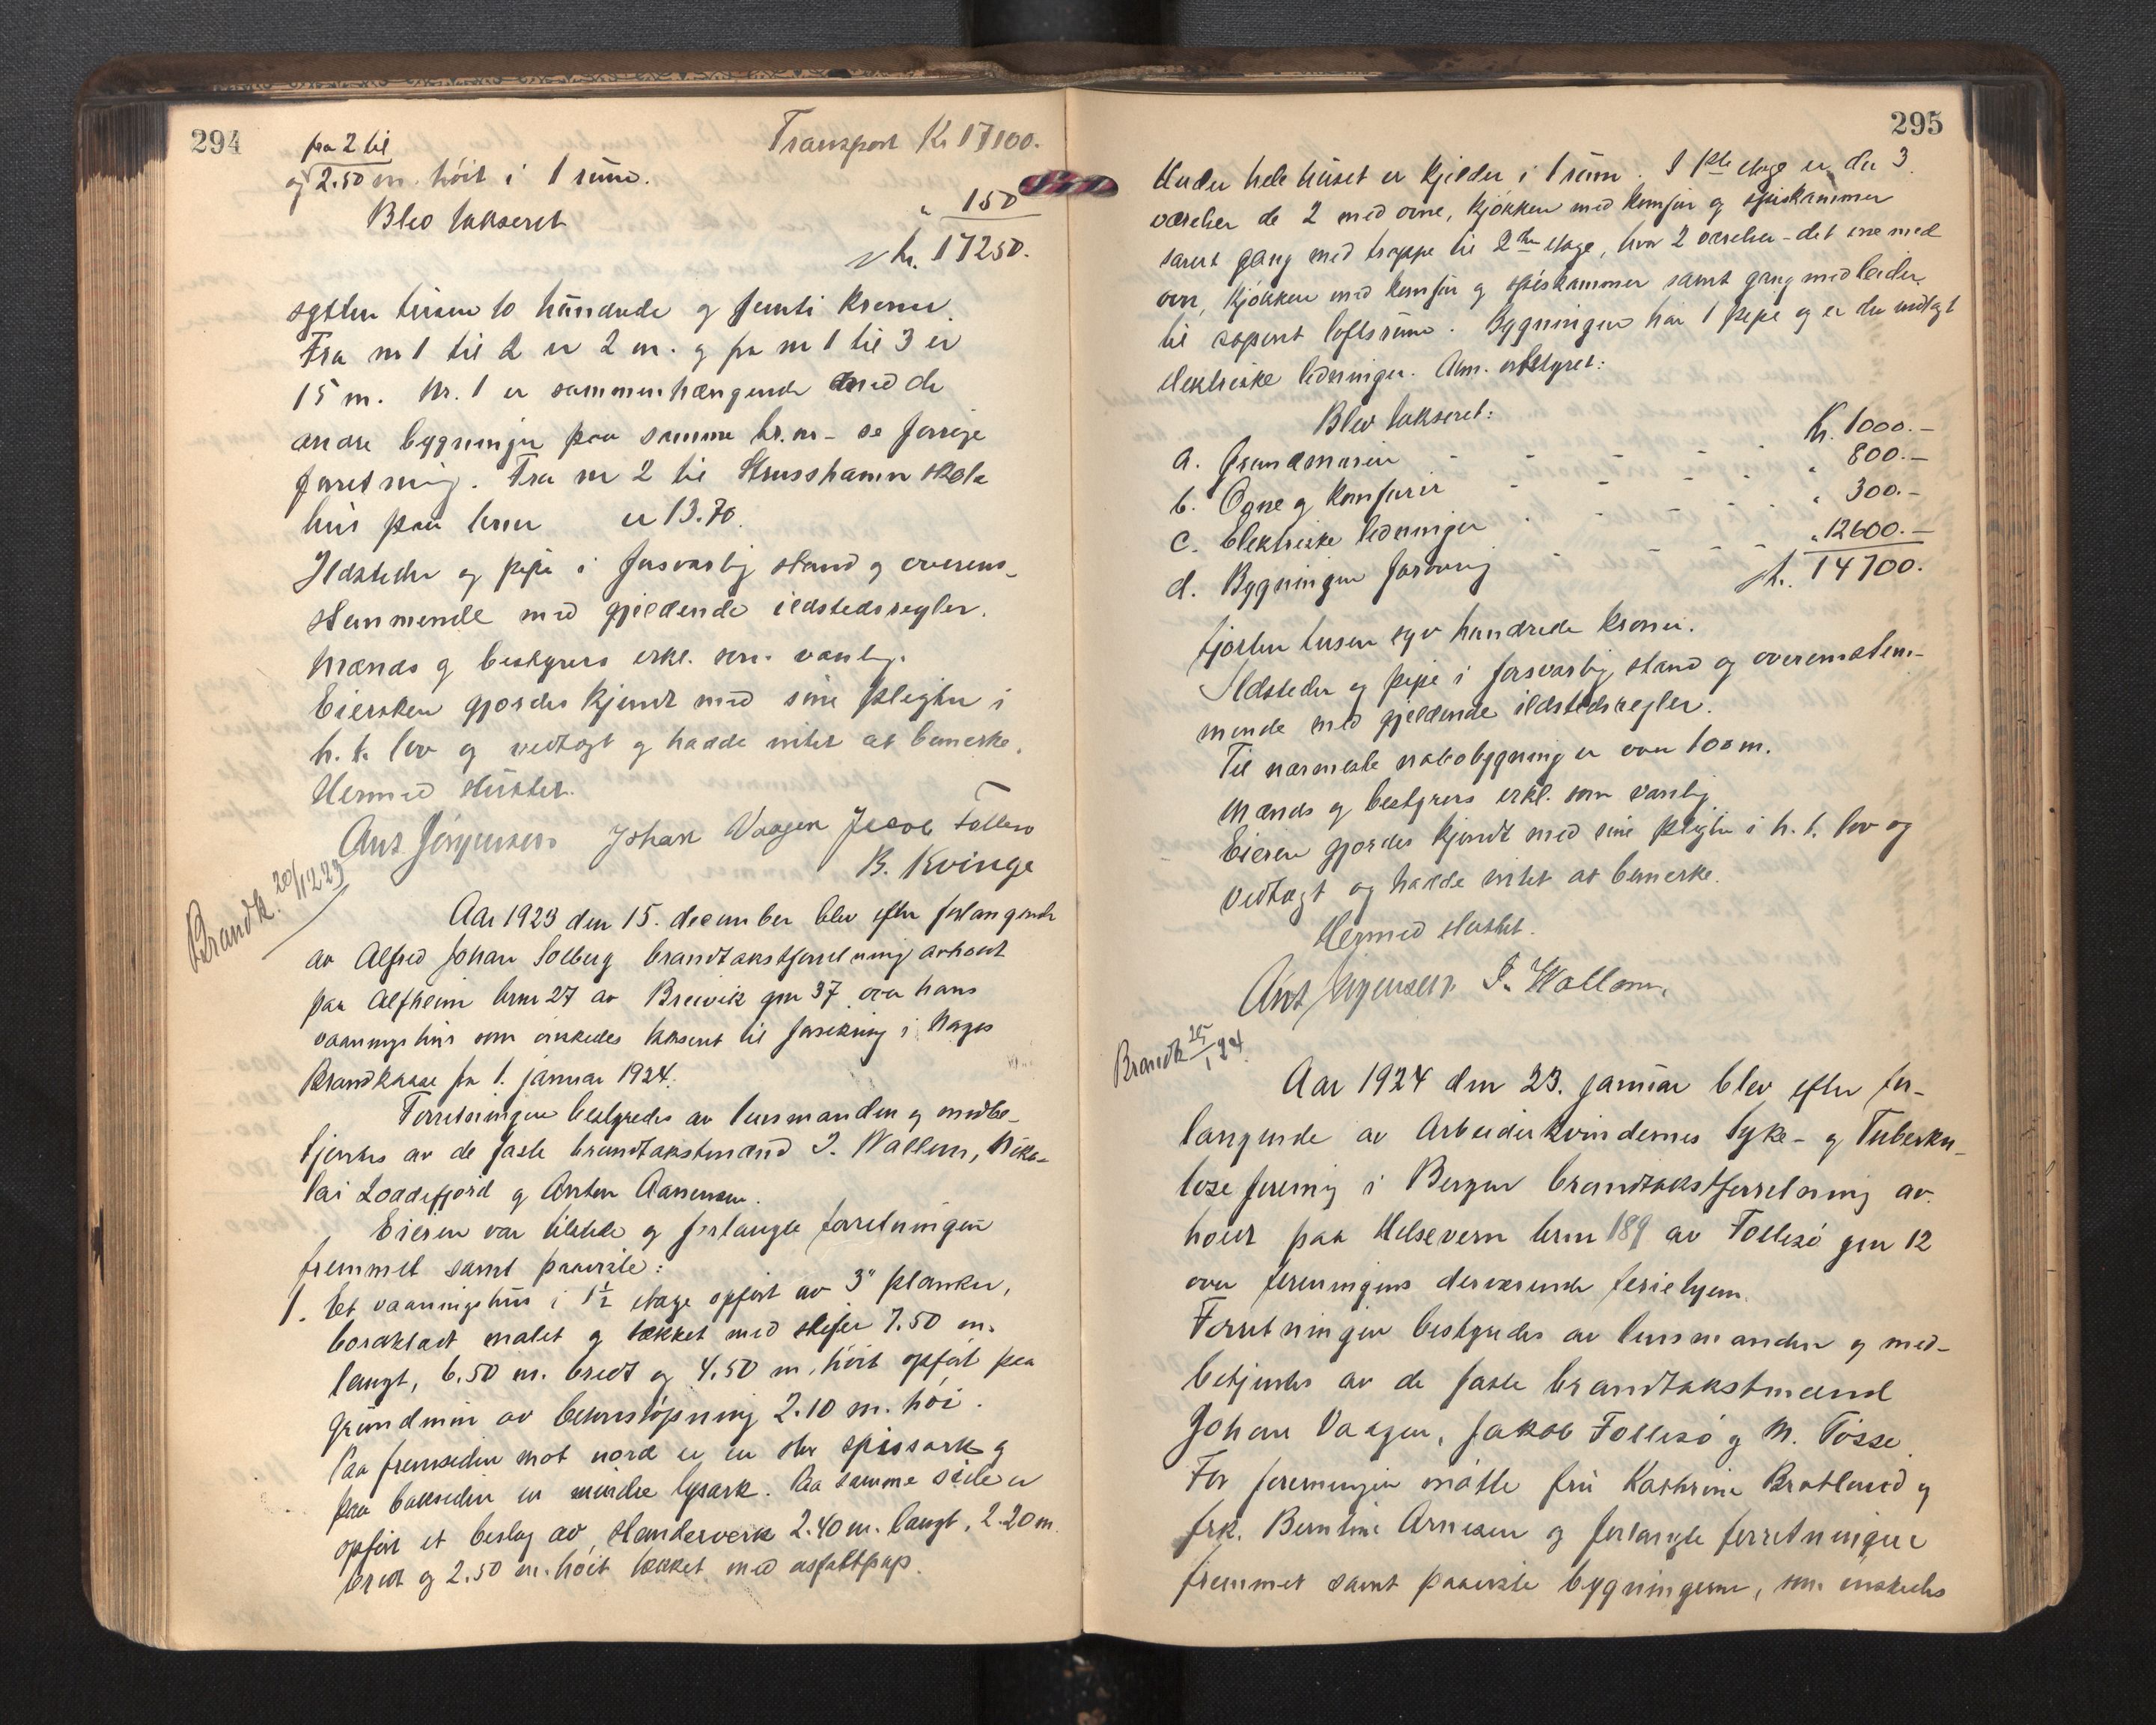 294
Transport Kr 17100.
fra 2 til
og 2.50 m. höit i 1 rum.
Blev takseret " 150
kr. 17250.
sytten tusen to hundrede og femti kroner.
Fra nr 1 til 2 er 2 m. og fra nr 1 til 3 er
15 m. Nr. 1 er sammenhængende med de
andre bygninger paa samme br.nr - se forrige
forretning. Fra nr 2 til Strusshamn skole
hus paa brnr er 13.70.
Ildsteder og pipe i forsvarlig stand og overens-
stemmende med gjeldende ildstedsregler.
Mænds og bestyrers erkl. som vanlig.
Eiersken gjordes kjendt med sine pligter i
h. t. lov og vedtægt og hadde intet at bemerke.
Hermed sluttet.
Ant Jörgensen. Johan Vaagen Jacob Follesö
B. Kvinge
Brandk. 20/12 23
Aar 1923 den 15. december blev efter forlangende
av Alfred Johan Solberg brandtakstforretning avholdt
paa Alfheim brnr 27 av Breivik gnr 37 over hans
vaaningshus som önskedes takseret til forsikring i Norges
Brandkasse fra 1. januar 1924.
Forretningen bestyredes av lensmanden og medbe-
tjentes av de faste brandtakstmænd I. Wallem, Niko-
lai Loddefjord og Anton Aanensen.
Eieren var tilstede og forlangte forretningen
fremmet samt paaviste:
1. Et vaaningshus i 1 1/2 etage opfört av 3" planker,
bordklædt malet og tækket med skifer 7.50 m.
langt, 6.50 m. bredt og 4.50 m. höit opfört paa
grundmur av betonstöpning 2.10 m. höi.
Paa fremsiden mot nord er en stor spissark og
paa baksiden en mindre lysark. Paa samme side er
opfört et beslag av standerverk 2.40 m. langt, 2.20 m
bredt og 2.50 m. höit tækket med asfaltpap.
295
Under hele huset er kjelder i 1 rum. I 1ste etage er der 3
værelser de 2 med ovne, kjökken med komfur og spiskammer
samt gang med trappe til 2den etage, hvor 2 værelser - det ene med
ovn, kjökken med komfur og spiskammer samt gang med leider
til aapent loftsrum. Bygningen har 1 pipe og er der indlagt
elektriske ledninger. Alm. utstyret:
Blev takseret:
a. Grundmuren - - - Kr. 1000.-
b. Ovne og komfurer - - - " 800.-
c. Elektriske ledninger - - - " 300.-
d. Bygningen forövrig - - - " 12600.-
kr. 14700.
fjorten tusen syv hundrede kroner.
Ildsteder og pipe i forsvarlig stand og overensstem-
mende med gjeldende ildstedsregler.
Til nærmeste nabobygning er over 100 m.
Mænds og bestyrers erkl. som vanlig
Eieren gjordes kjendt med sine pligter i h. t. lov og
vedtægt og hadde intet at bemerke.
Hermed sluttet.
Ant Jörgensen. I. Wallem.
Brandk 25/1 24.
Aar 1924 den 23. januar blev efter for-
langende av Arbeiderkvindernes Syke- og Tuberku-
lose forening i Bergen brandtakstforretning av
holdt paa Helsevern brnr 189 av Follesö gnr 12
over foreningens derværende feriehjem.
Forretningen bestyredes av lensmanden og med-
betjentes av de faste brandtakstmænd
Johan Vaagen, Jakob Follesö og N. Tösse.
For foreningen mötte fru Kathrine Bratland og
frk. Berntine Arnesen og forlangte forretningen
fremmet samt paaviste bygningerne, som önskedes